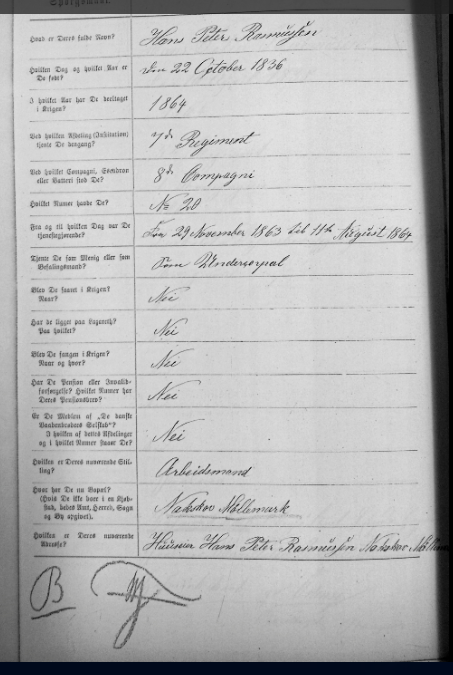 Spørgsmaal.
Hvad er Deres fulde Navn?
Hans Peter Rasmussen
Hvilken Dag og hvilket Aar er
De født?
den 22 October 1836
I hvilket Aar har De deeltaget
i Krigen?
1864
Ved hvilken Afdeling (Institution)
tjente De dengang?
7de Regiment
Ved hvilket Compagni, Escadron
eller Batteri stod De?
8de Compagni
Hvilket Numer havde De?
No 20
Fra og til hvilken Dag var De
tjenestgjørende?
Fra 29 November 1863 til 11th August 1864
Tjente De som Menig eller som
Befalingsmand?
Som Undercorpral
Blev De saaret i Krigen?
Naar?
Nei
Har De ligget paa Lazareth?
Paa hvilket?
Nei
Blev De fangen i Krigen?
Naar og hvor?
Nei
Har De Pension eller Invalid-
forsørgelse? Hvilket Numer har
Deres Pensionsbrev?
Nei
Er De Medlem af „De danske
Vaabenbrødres Selskab"?
I hvilken af dettes Afdelinger
og i hvilket Numer staaer De?
Nei
Hvilken er Deres nuværende Stil-
ling?
Arbeidsmand
Hvor har De nu Bopæl?
(Hvis De ikke boer i en Kjøb-
stad, bedes Amt, Herred, Sogn
og By opgivet).
Nakskov Møllemark
Hvilken er Deres nuværende
Adresse?
Huusier Hans Peter Rasmussen Nakskov
B